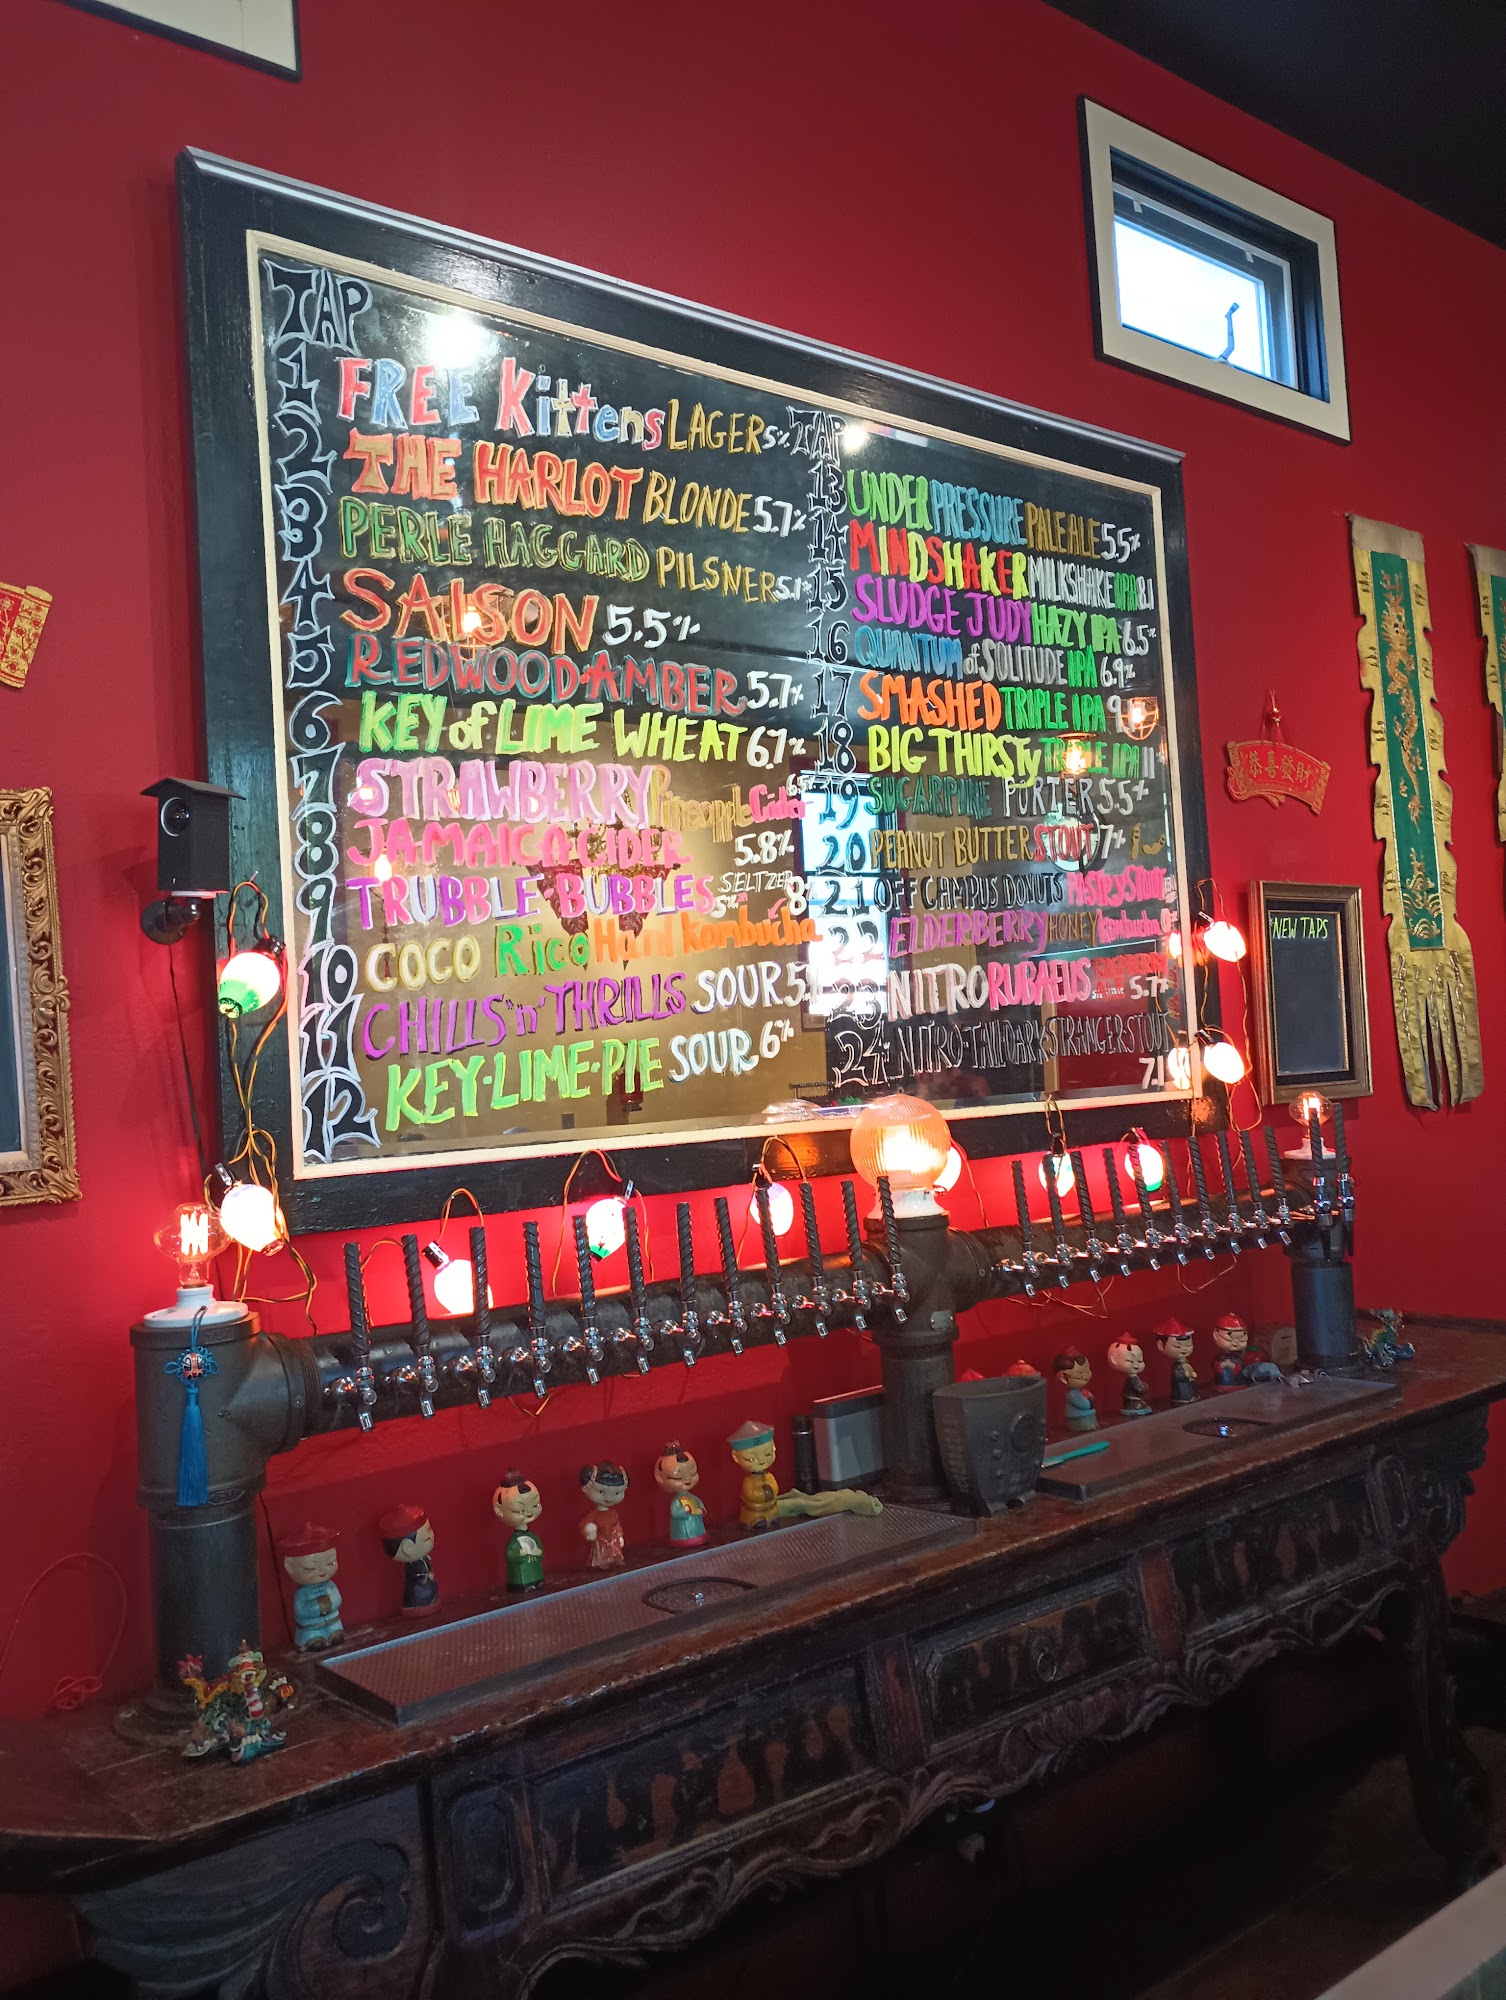 TAP
1 FREE Kittens LAGER 5%
2 THE HARLOT BLONDE 5.7%
3 PERLE HAGGARD PILSNER 5.1%
4 SAISON 5.5%
5 REDWOOD·AMBER 5.7%
6 KEY of LIME WHEAT 6.7%
7 STRAWBERRY Pineapple Cider 6.5%
8 JAMAICA CIDER 5.8%
9 TRUBBLE·BUBBLES SELTZER 5%
10 COCO Rico Hard Kombucha 8
11 CHILLS "n" THRILLS SOUR 5.
12 KEY·LIME·PIE SOUR 6%
TAP
13 UNDER PRESSURE PALE ALE 5.5%
14 MINDSHAKER MILKSHAKE IPA 8.1
15 SLUDGE JUDY HAZY IPA 6.5%
16 QUANTUM of SOLITUDE IPA 6.9%
17 SMASHED TRIPLE IPA 9.
18 BIG THIRSTY TRIPLE IPA 11
19 SUGARPINE PORTER 5.5%
20 PEANUT BUTTER STOUT 7%
21 OFF CAMPUS DONUTS PASTRY STOUT
22 ELDERBERRY HONEY Kombucha
23 NITRO RUBAEUS RASPBERRY 5.7%
24 NITRO·THE DARK STRANGER STOUT
7.1
恭喜發財
*NEW TAPS